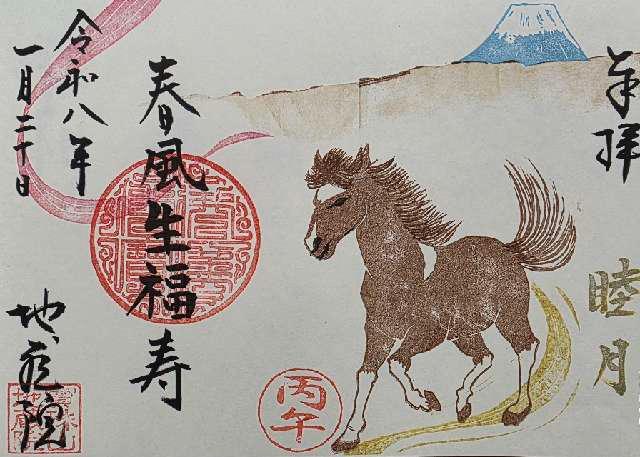 奉拝
睦月
丙午
春風生福寿
令和八年
一月二十日
地蔵院